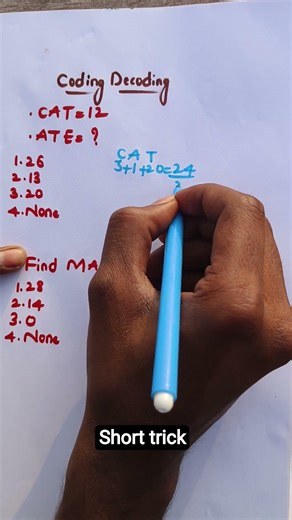 Coding Decoding
• CAT=12
• ATE= ?
1. 26
2. 13
3. 20
4. None
C A T
3+1+20=24
Find MA
1. 28
2. 14
3. 0
4. None
Short trick